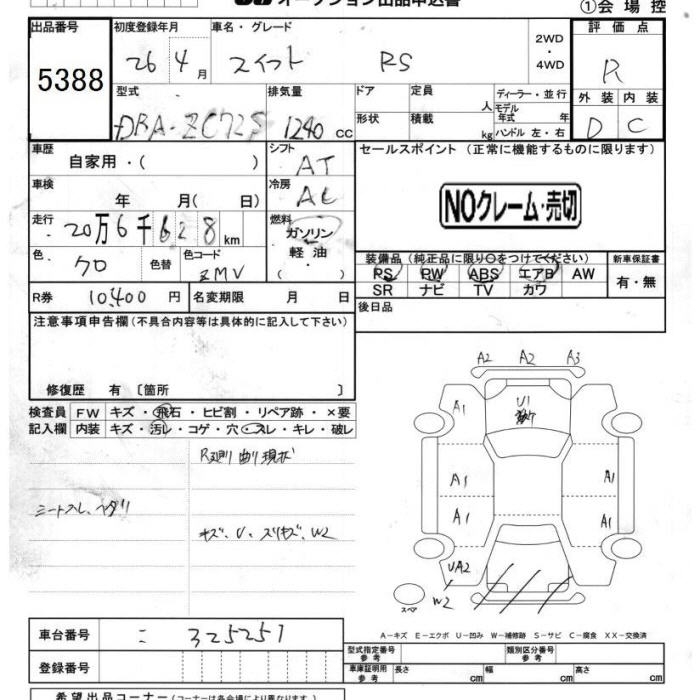 オークション出品申込書
①会場控
出品番号
5388
初度登録年月
26 4月
車名・グレード
スイフト RS
2WD
・
4WD
評価点
R
外装 内装
D C
型式
DBA-ZC72S
排気量
1240 cc
ドア
形状
定員
人
積載
kg
ディーラー・並行
モデル
年式 年
ハンドル 左・右
車歴
自家用・( )
シフト
AT
セールスポイント (正常に機能するものに限ります)
NOクレーム・売切
車検
年 月( 日)
冷房
AC
走行
20万6千628km
燃料
ガソリン
軽油
・( )
色
クロ
色替
色コード
ZMV
装備品 (純正品に限り○をつけてください)
PS PW ABS エアB AW
SR ナビ TV カワ
新車保証書
有・無
R券 10400円
名変期限 月 日
後日品
注意事項申告欄 (不具合内容等は具体的に記入して下さい)
修復歴 有 〔箇所 〕
検査員
記入欄
FW キズ・飛石・ヒビ割・リペア跡・×要
内装 キズ・汚レ・コゲ・穴・スレ・キレ・破レ
R廻り曲り現状
シートスレ、ヘタリ
キズ、U、スリキズ、W2
A2 A2 A3
A1
U1
A1 A1
A1 A1
UA2
W2
スペア
A-キズ E-エクボ U-凹み W-補修跡 S-サビ C-腐食 XX-交換済
車台番号
325251
登録番号
型式指定番号
参考
類別区分番号
参考
車庫証明用
参考
長さ cm 幅 cm 高さ cm
希望出品コーナー